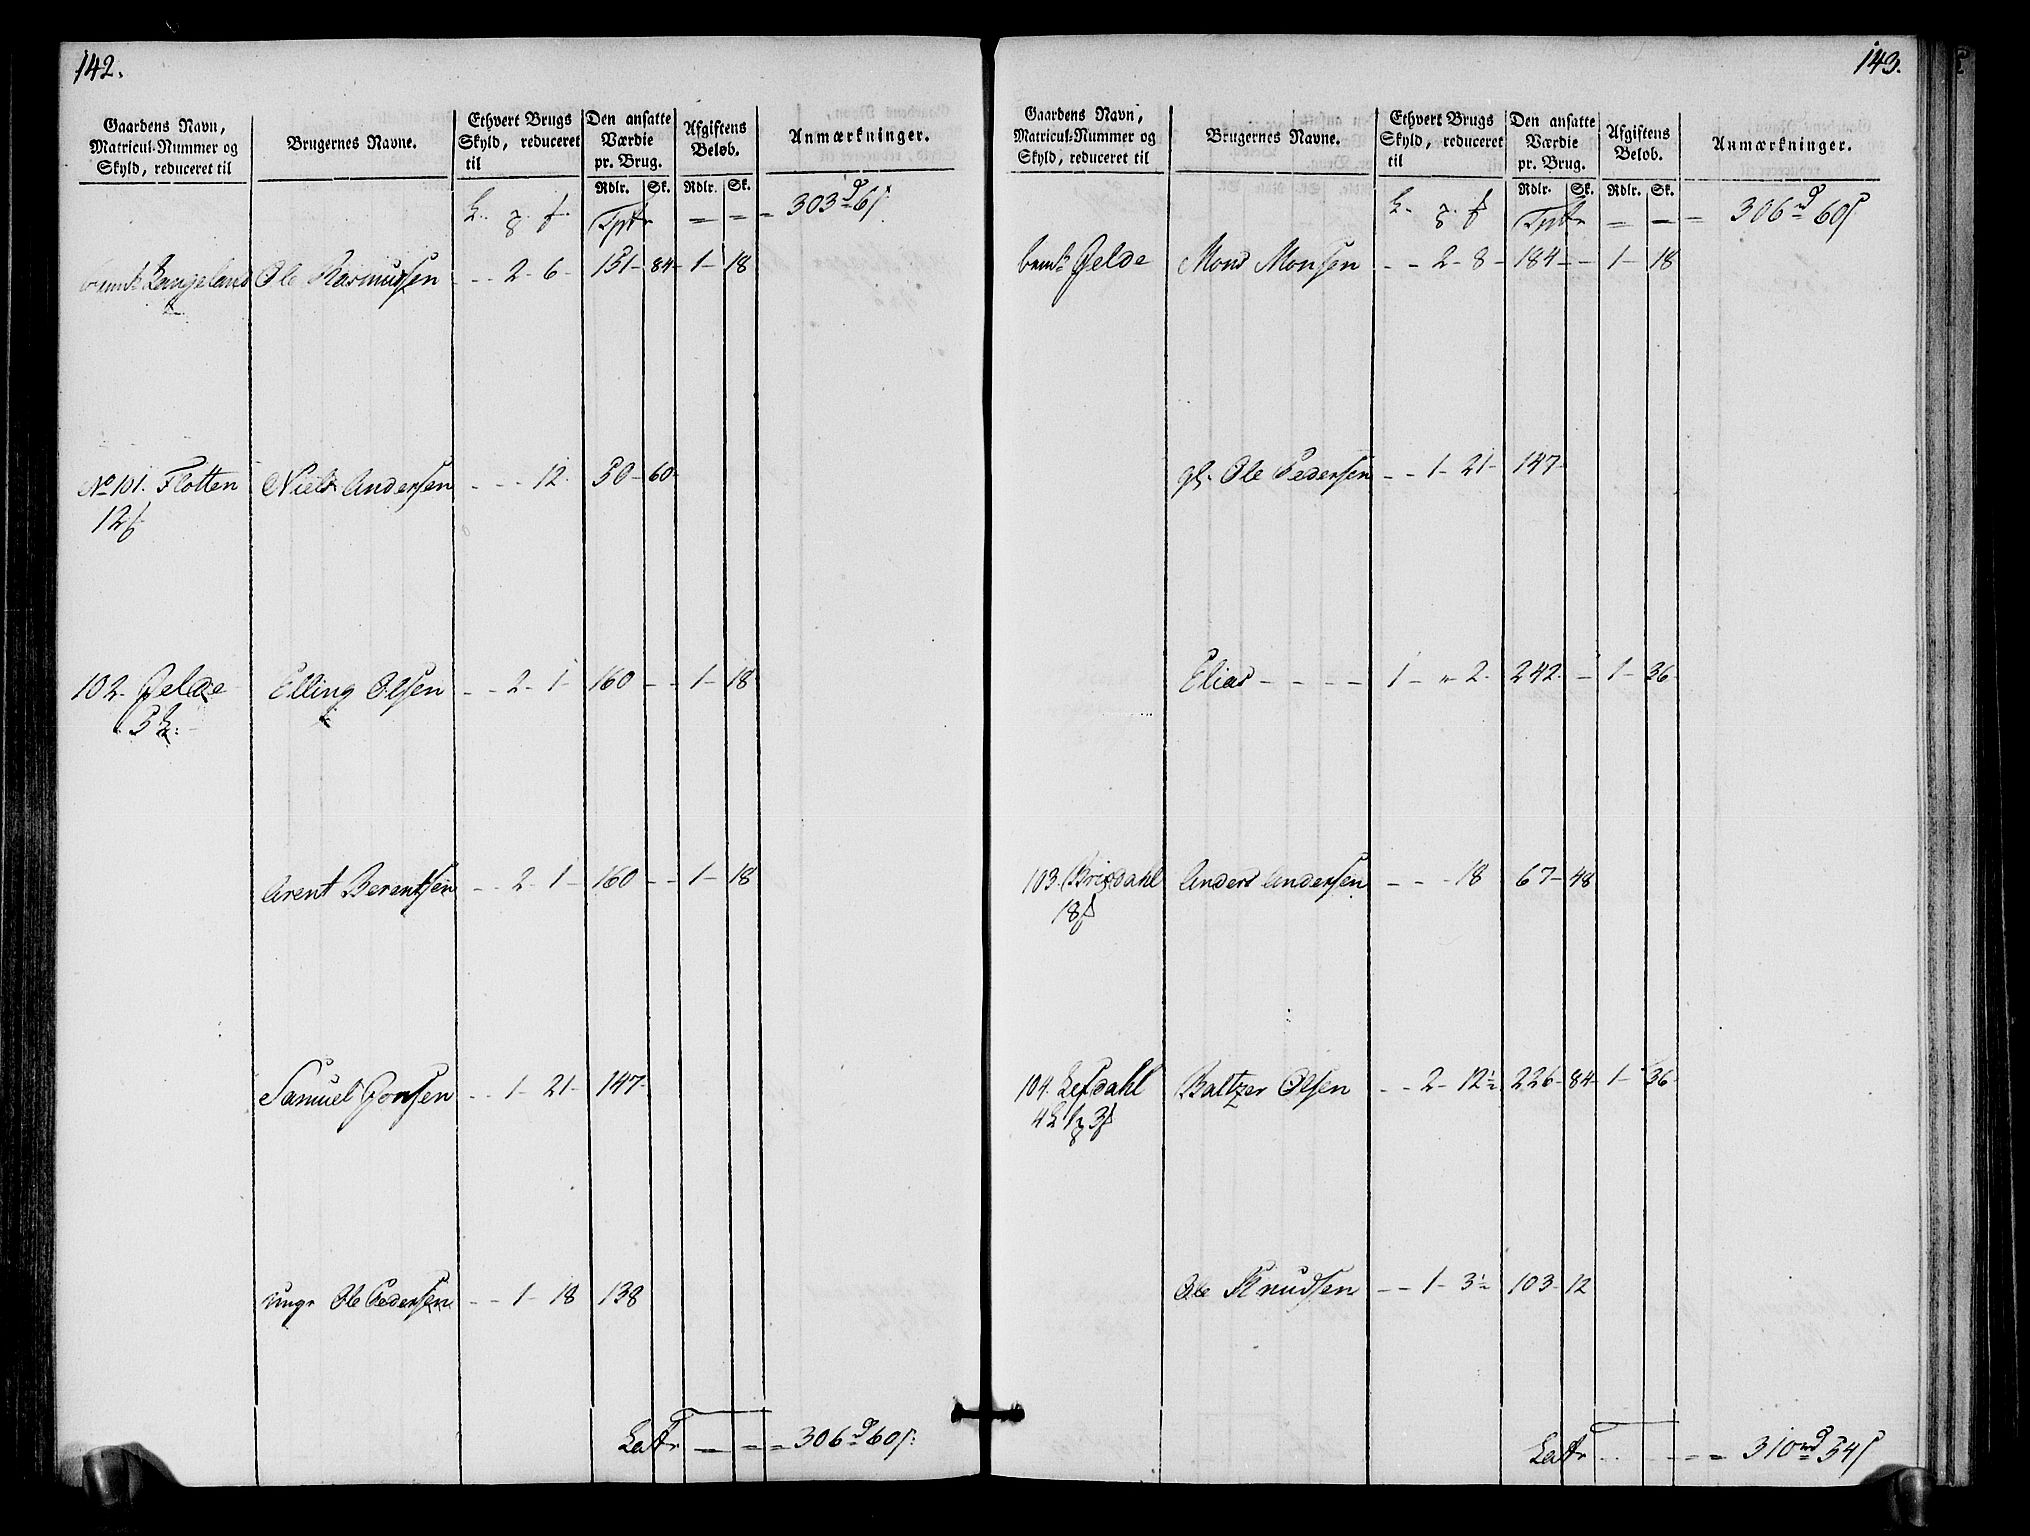 142.
Gaardens Navn, Matricul-Nummer og Skyld, reduceret til | Brugernes Navne. | Ethvert Brugs Skyld, reduceret til | Den ansatte Værdie pr. Brug. | Afgiftens Beløb. | Anmærkninger.
Rdlr. Sk. Rdlr. Sk.
Tptr = = = 303 d 6 s
Langeland Ole Rasmussen - - 2 - 6 - 151 - 84 - 1 - 18
No 101. Flotten Niels Andersen - - - 12. 50 - 60
12
102. Jelde Elling Olsen - - 2 - 1 - 160 - - 1 - 18
5
Arent Berentsen - - 2 - 1 - 160 - - 1 - 18
Samuel Jonsen - - 1 - 21 - 147
unge Ole Pedersen - - 1 - 18 138
Latr = = = 306 d 60 s:
143.
Gaardens Navn, Matricul-Nummer og Skyld, reduceret til | Brugernes Navne. | Ethvert Brugs Skyld, reduceret til | Den ansatte Værdie pr. Brug. | Afgiftens Beløb. | Anmærkninger.
Rdlr. Sk. Rdlr. Sk.
Tptr = = = 306 d 60 s
Jelde Mons Monsen - - 2 - 8 - 184 - - 1 - 18
gl. Ole Pedersen - - 1 - 21 - 147
Elias - - - - 1 - " 2. 242. - 1 - 36
103. Brixdahl Anders Andersen - - - 18 67 - 48
18
104. Lefdahl Baltzer Olsen - - 2 - 12½ 226 - 84 - 1 - 36
4 1 3
Ole Knudsen - - 1 - 3½ 103 - 12
Latr - - = = 310 rd 54 s